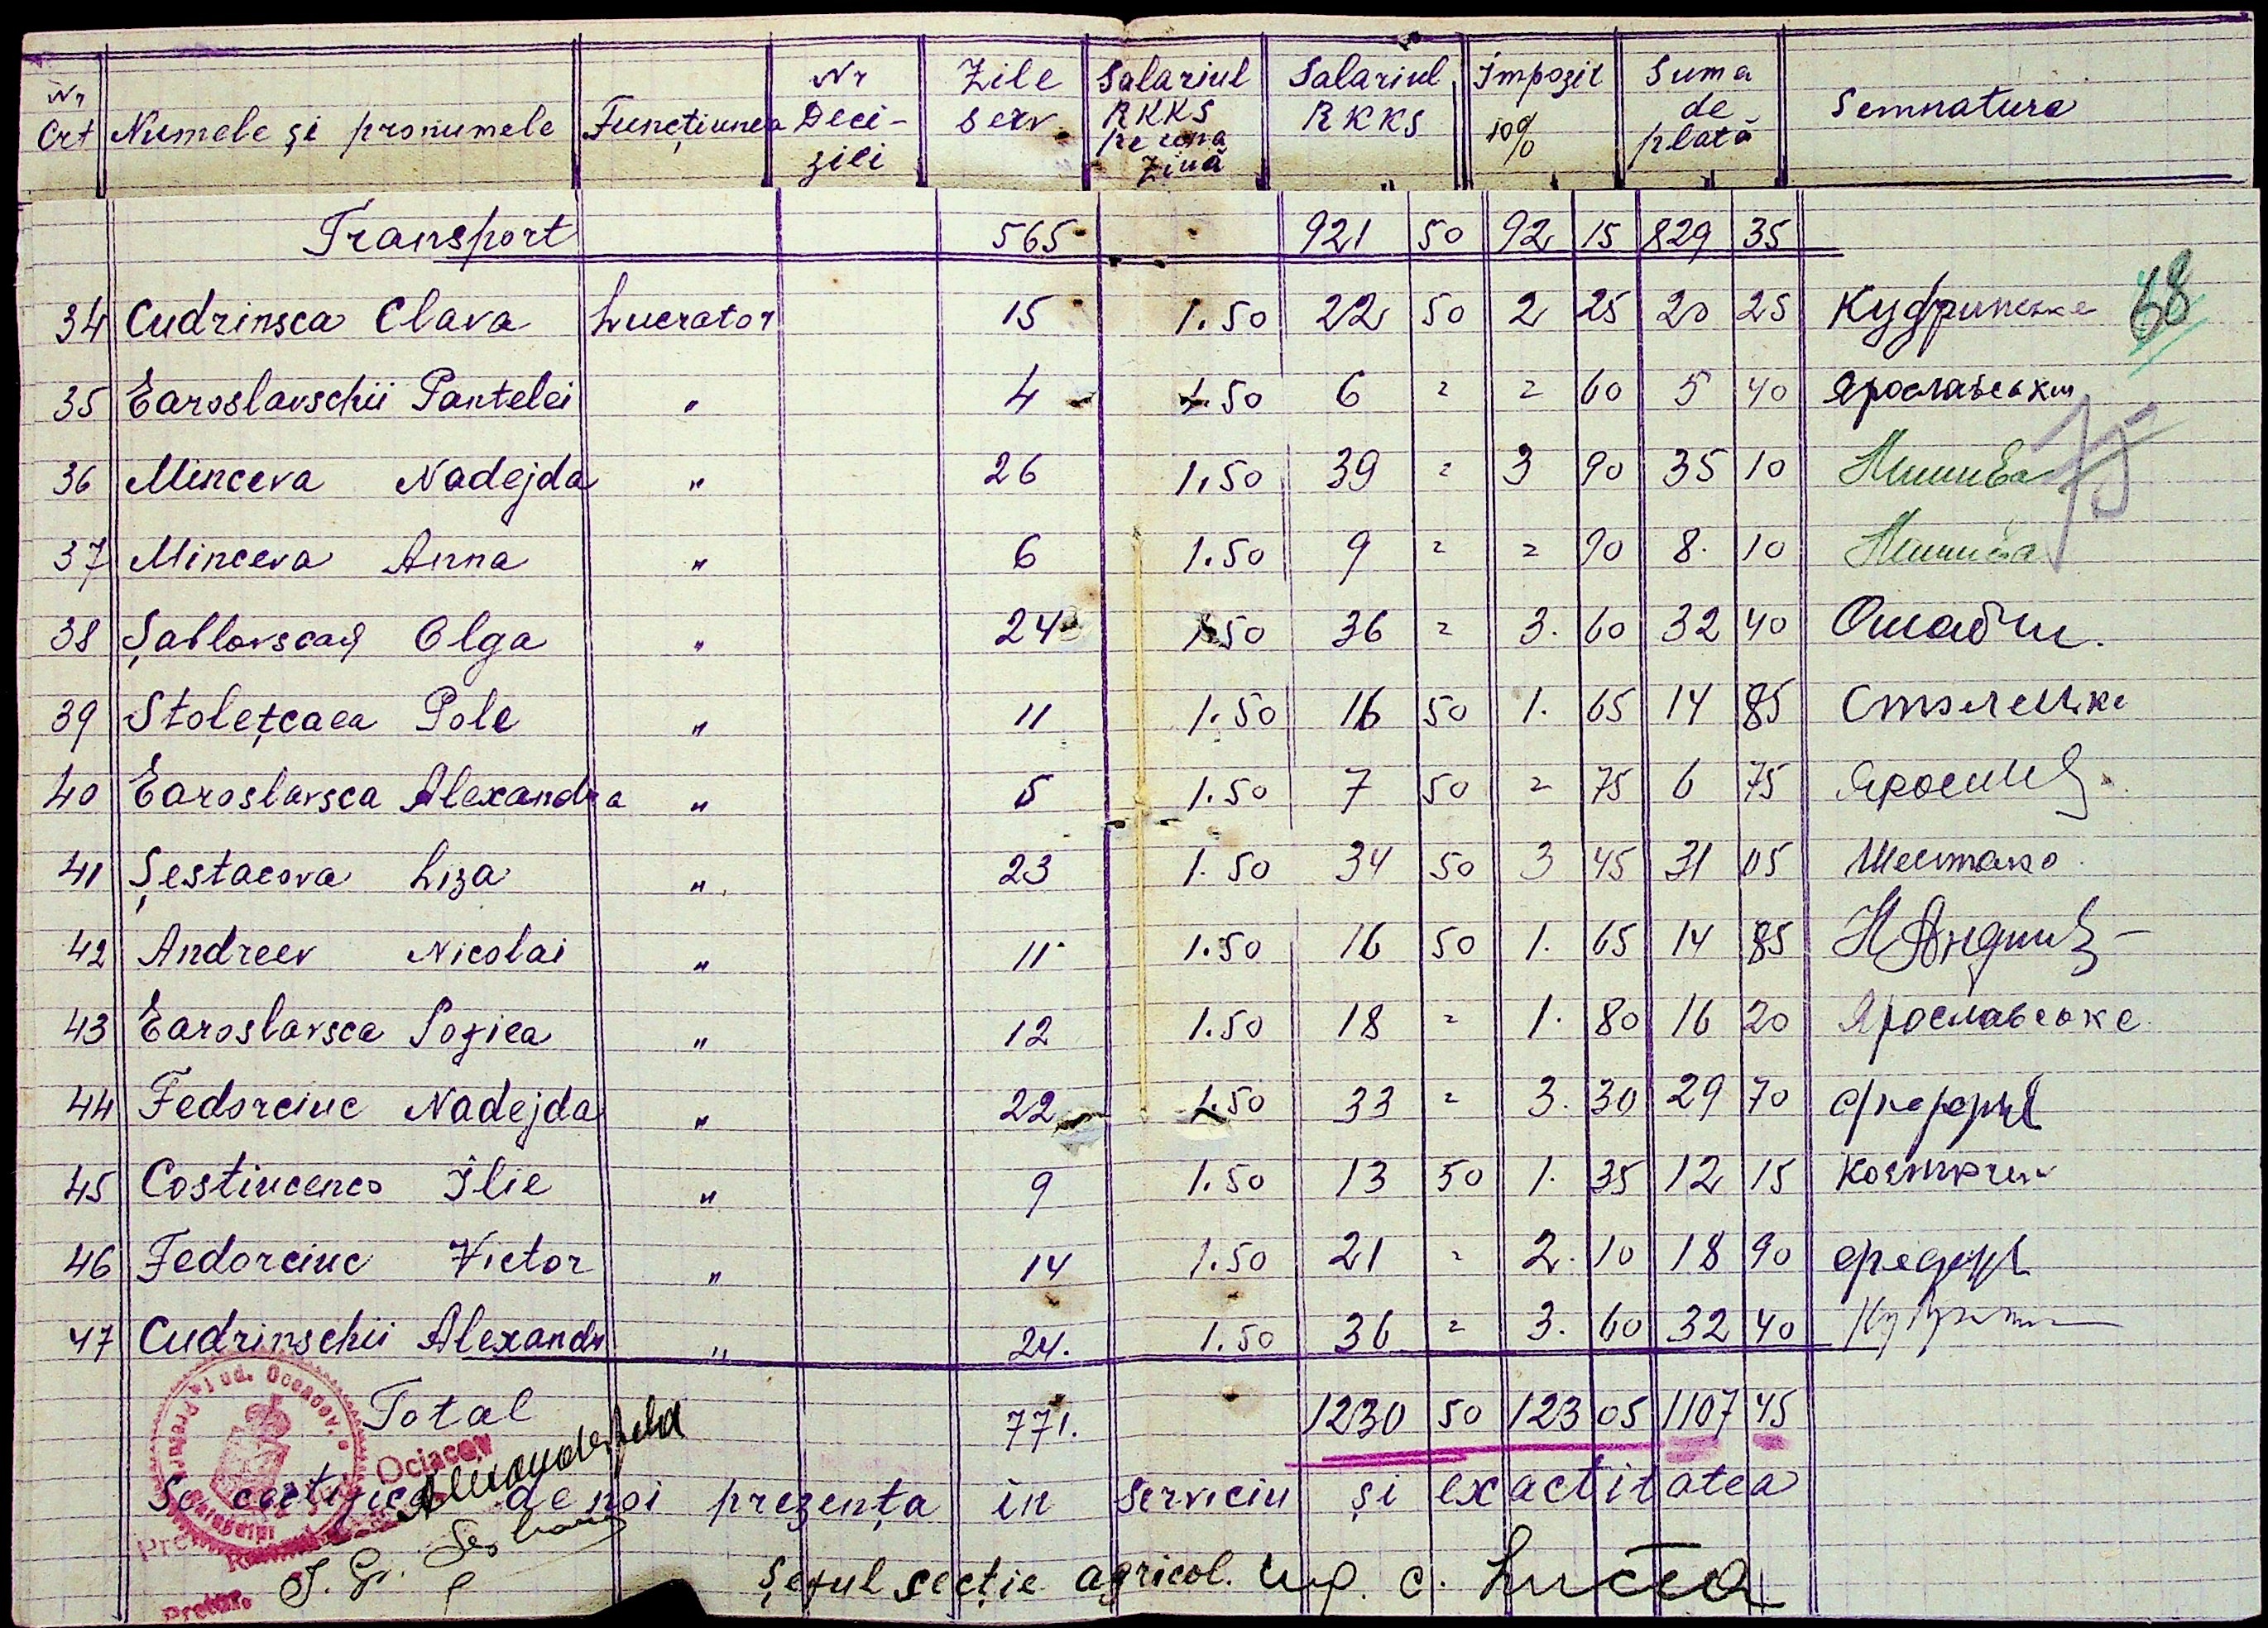 Nr Crt Numele și pronumele Funcțiunea Nr Deci-zili Zile serv. Salariul RKKS pe una zină Salariul RKKS Impozit 10% Suma de plată Semnatura
Transport 565 921 50 92 15 829 35
34 Cudrinsca Clava Lucrator 15 1.50 22 50 2 25 20 25 68
35 Earoslavschii Pantelei " 4 1.50 6 = = 60 5 40 Ярославський
36 Minceva Nadejda " 26 1.50 39 = 3 90 35 10 75
37 Minceva Anna " 6 1.50 9 = = 90 8. 10
38 Șablovscaя Olga " 24 1.50 36 = 3. 60 32 40
39 Stolețcaea Pole " 11 1.50 16 50 1. 65 14 85
40 Earoslavsca Alexandra " 5 1.50 7 50 = 75 6 75
41 Șestacova Liza " 23 1.50 34 50 3 45 31 05 Шестако
42 Andreev Nicolai " 11 1.50 16 50 1. 65 14 85
43 Earoslavsca Sofiea " 12 1.50 18 = 1. 80 16 20 Ярославське
44 Fedorciuc Nadejda " 22 1.50 33 = 3. 30 29 70
45 Costiucenco Ilie " 9 1.50 13 50 1. 35 12 15
46 Fedorciuc Victor " 14 1.50 21 = 2. 10 18 90
47 Cudrinschii Alexandr " 24. 1.50 36 = 3. 60 32 40
Total 771. 1230 50 123 05 1107 45
Jud. Oceacov
Ociacov
Se certifica de noi prezența in serviciu și exactitatea
Șeful secție agricol. ing. C.
Pretor.